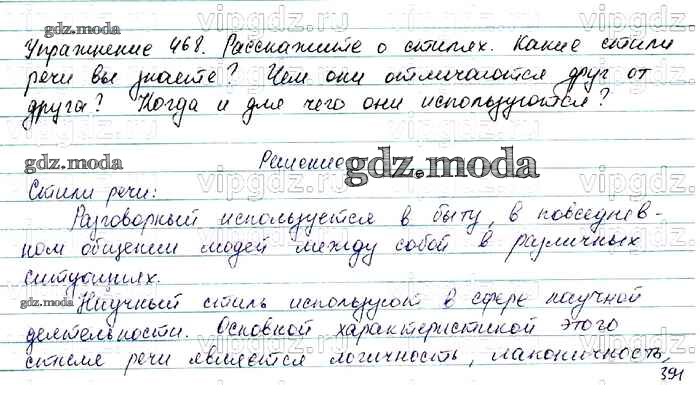 vipgdz.ru vipgdz.ru vipgdz.ru
gdz.moda
Упражнение 468. Расскажите о стилях. Какие стили
речи вы знаете? Чем они отличаются друг от
друга? Когда и для чего они используются?
gdz.moda Решение gdz.moda
Стили речи:
Разговорный используется в быту, в повседнев-
ном общении людей между собой в различных
ситуациях.
gdz.moda Научный стиль используют в сфере научной
деятельности. Основной характеристикой этого
стиля речи является логичность, лаконичность,
391